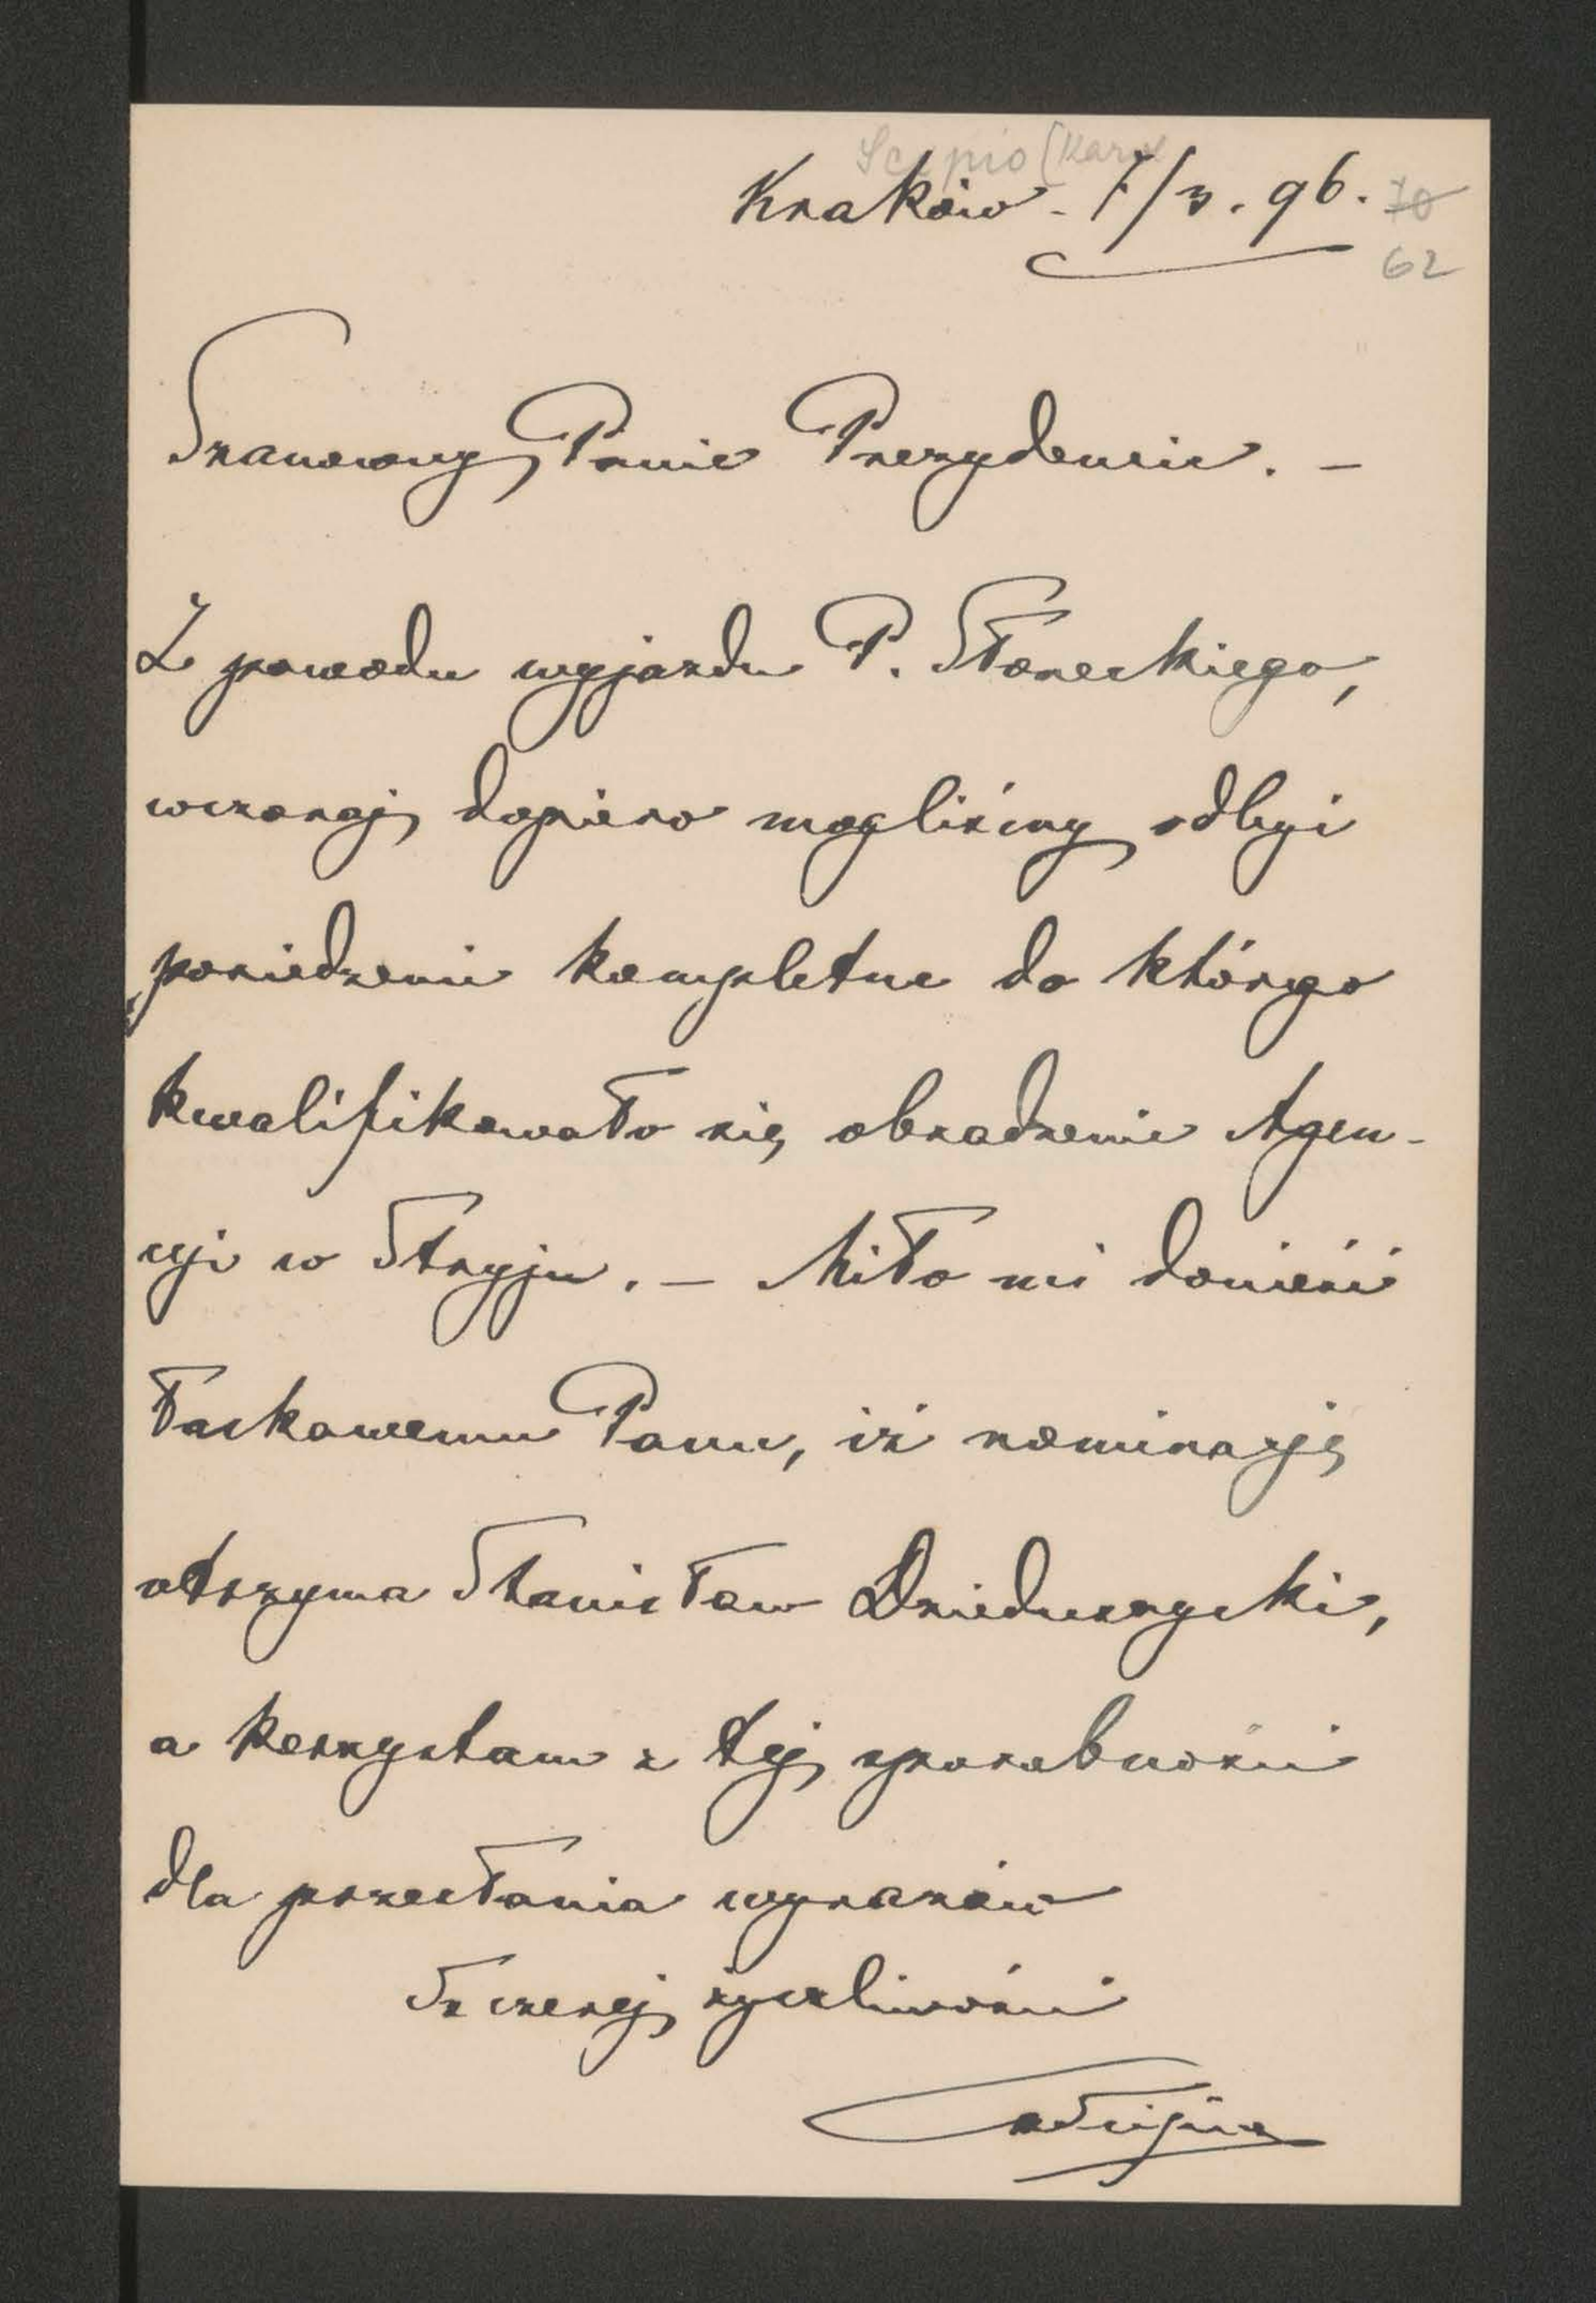 Scipio (Karol
Kraków - 7/3. 96. 70
62
Szanowny Panie Prezydencie. -
Z powodu wyjazdu P. Słoneckiego,
wczoraj dopiero mogliśmy odbyć
posiedzenie kompletne do którego
kwalifikowało się obradzenie Agen-
cyi w Stryju. - Miło mi donieść
Łaskawemu Panu, iż nominacyję
otrzyma Stanisław Dzieduszycki,
a korzystam z tej sposobności
dla przesłania wyrazów
Szczerej życzliwości